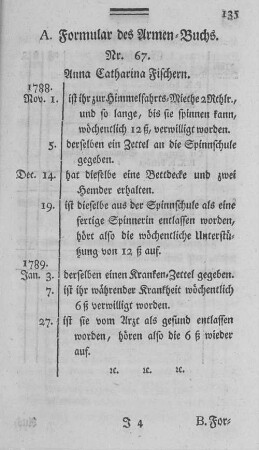 135
A. Formular des Armen-Buchs.
Nr. 67.
Anna Catharina Fischern.
1788.
Nov. 1. ist ihr zur Himmelfahrts-Miethe 2 Rthlr.,
und so lange, bis sie spinnen kann,
wöchentlich 12 ß, verwilligt worden.
5. derselben ein Zettel an die Spinnschule
gegeben.
Dec. 14. hat dieselbe eine Bettdecke und zwei
Hemder erhalten.
19. ist dieselbe aus der Spinnschule als eine
fertige Spinnerin entlassen worden,
hört also die wöchentliche Unterstü-
tzung von 12 ß auf.
1789.
Jan. 3. derselben einen Kranken-Zettel gegeben.
7. ist ihr währender Krankheit wöchentlich
6 ß verwilligt worden.
27. ist sie vom Arzt als gesund entlassen
worden, hören also die 6 ß wieder
auf.
ꝛc. ꝛc. ꝛc.
J 4 B. For-